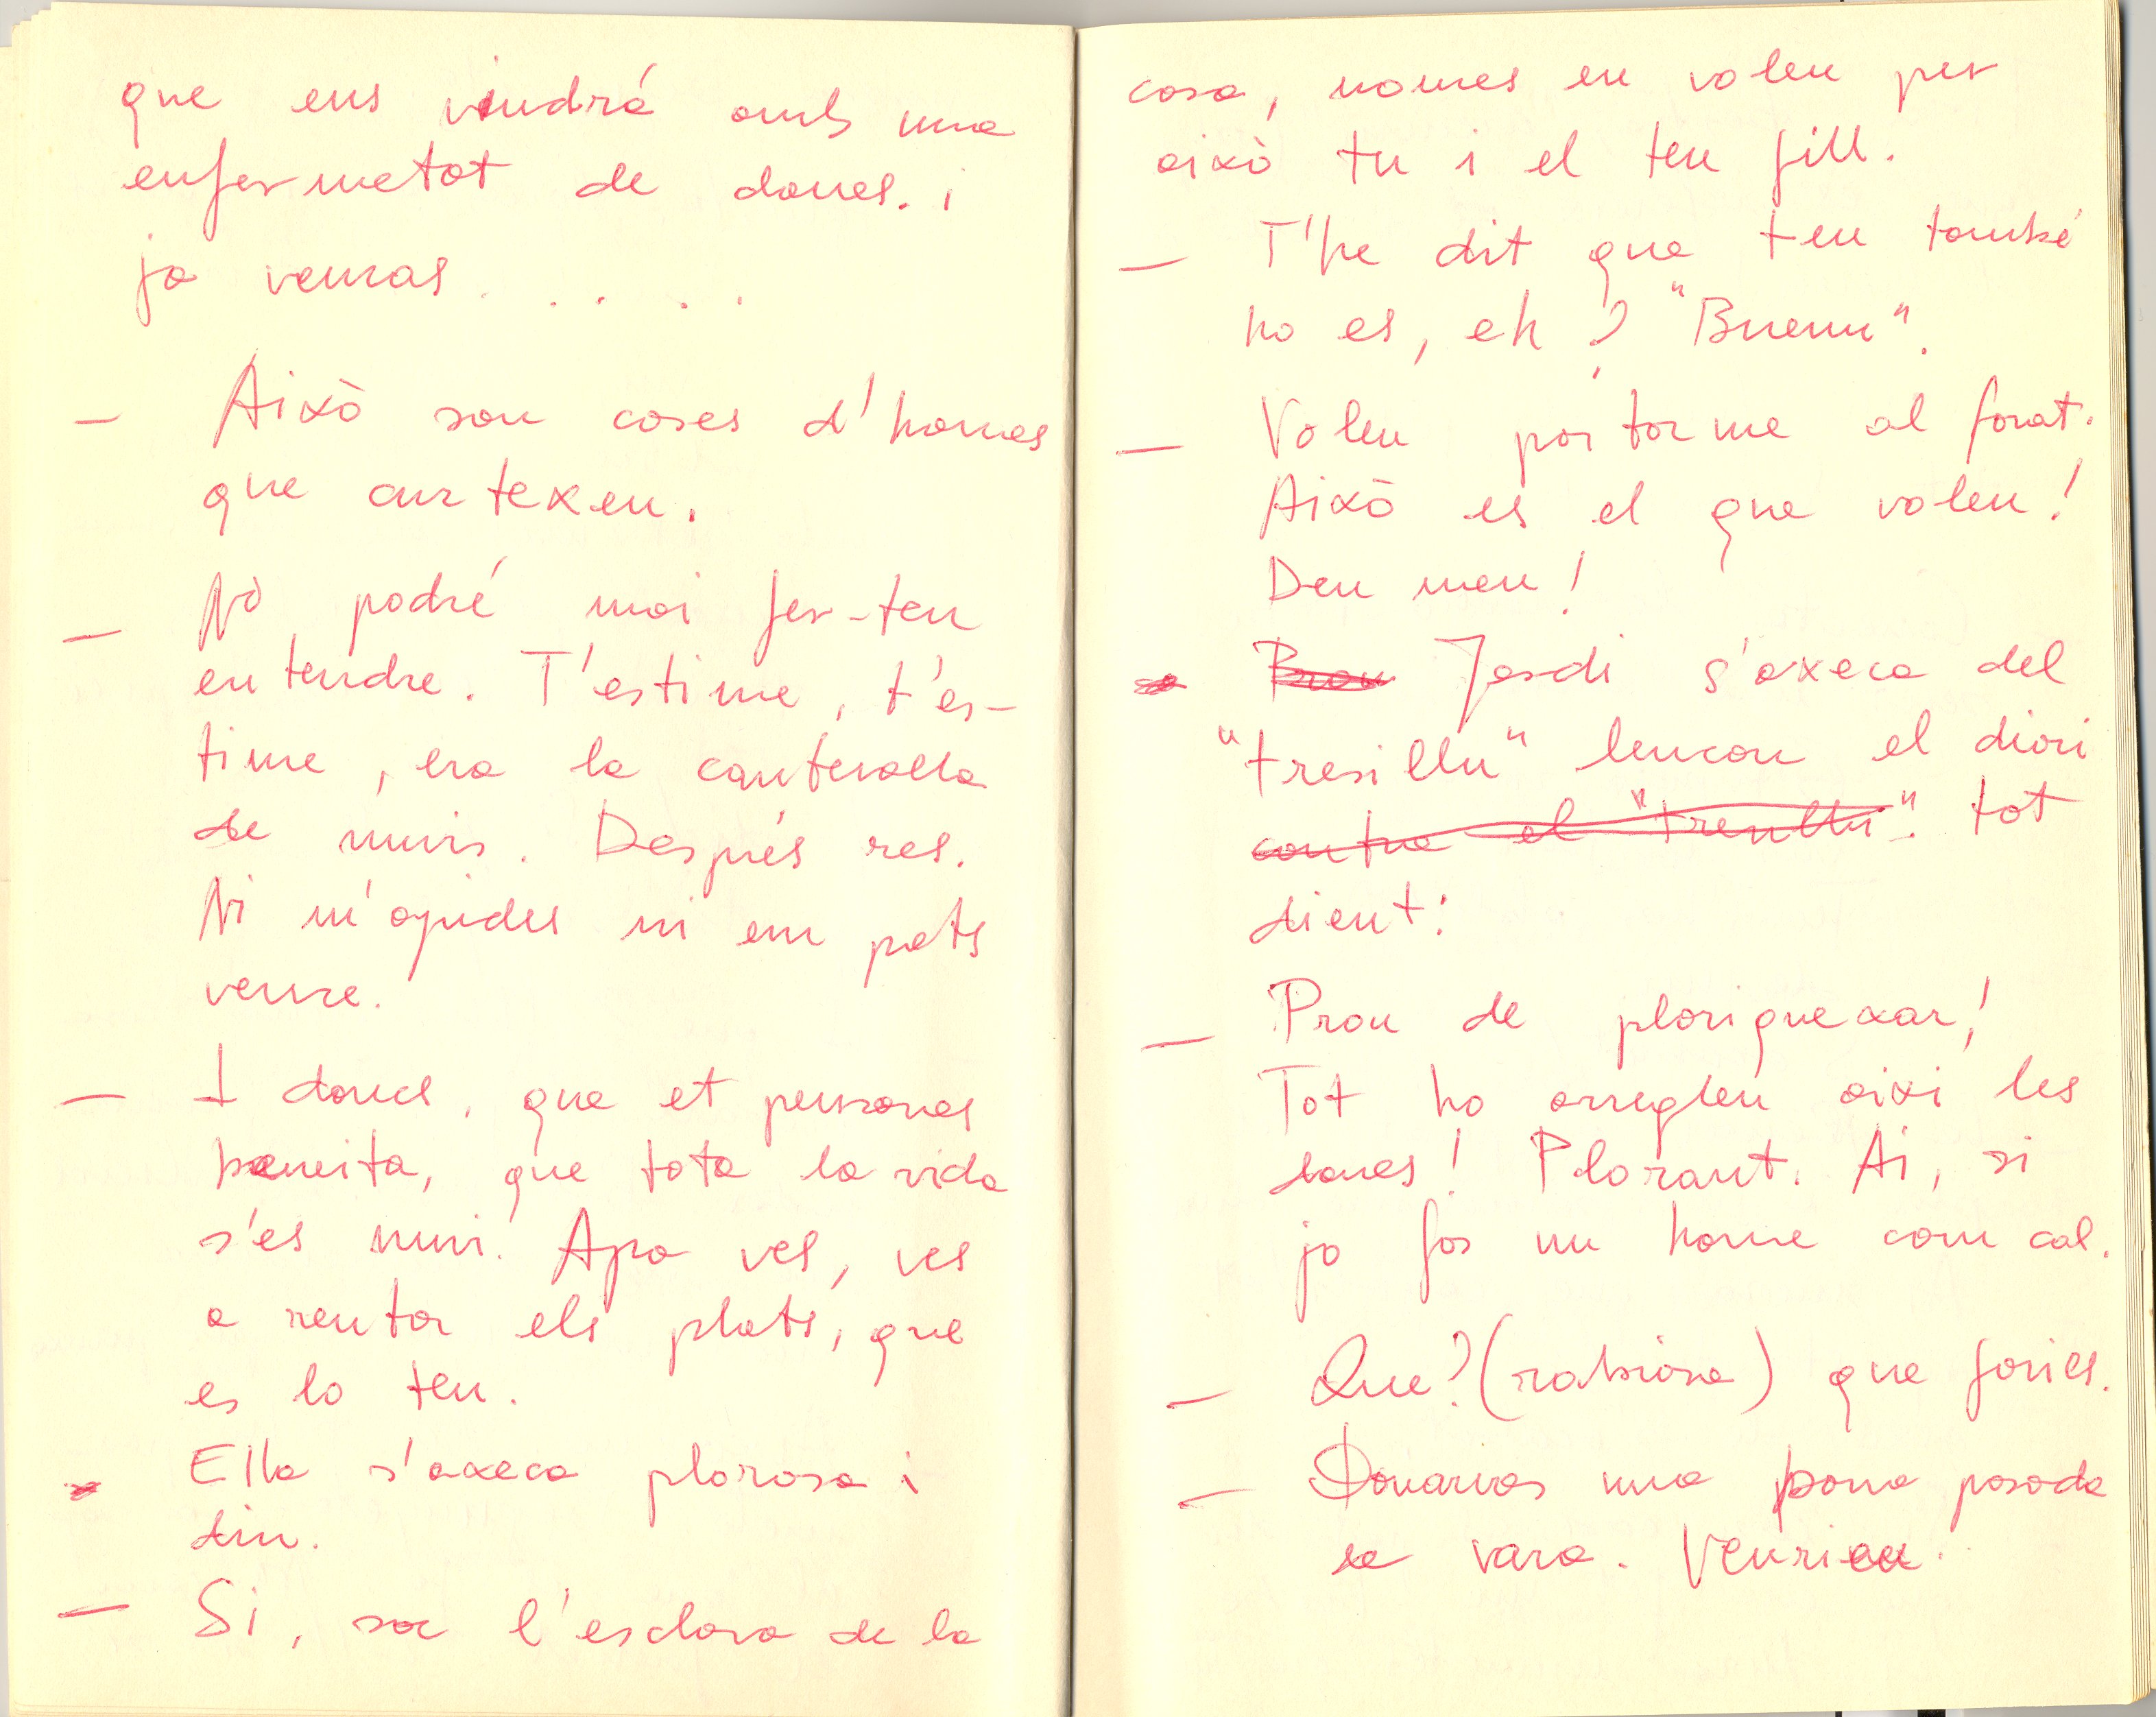 que ens vindrá amb una
enfermetat de dones. i
ja veuras . . . . .
— Això son coses d'homes
que curtexen.
— Nò podré mai fer-ten
entendre. T'estime, t'es-
time, era la cantarella
de nuvis. Després res.
Ni m'ajudes ni em pots
veure.
— I doncs, que et pensaves
boneita, que tota la vida
s'es nuvi. Apa ves, ves
a rentar els plats, que
es lo teu.
Ella s'axeca plorosa i
diu.
— Si, soc l'esclava de la
casa, nomes em voleu per
això tu i el teu fill.
— T'he dit que teu també
ho es, eh? "Buenu".
— Voleu portarme al forat.
Això es el que voleu!
Deu meu!
Prou Jordi s'axeca del
"tresillu" lençan el diari
contra el "tresillu". tot
dient:
— Prou de ploriquexar!
Tot ho arregleu aixi les
dones! Plorant. Ai, si
jo fos un home com cal.
— Que? (rabiosa) que faries.
— Donarvos una bona pasada
de vara. Veurieu.